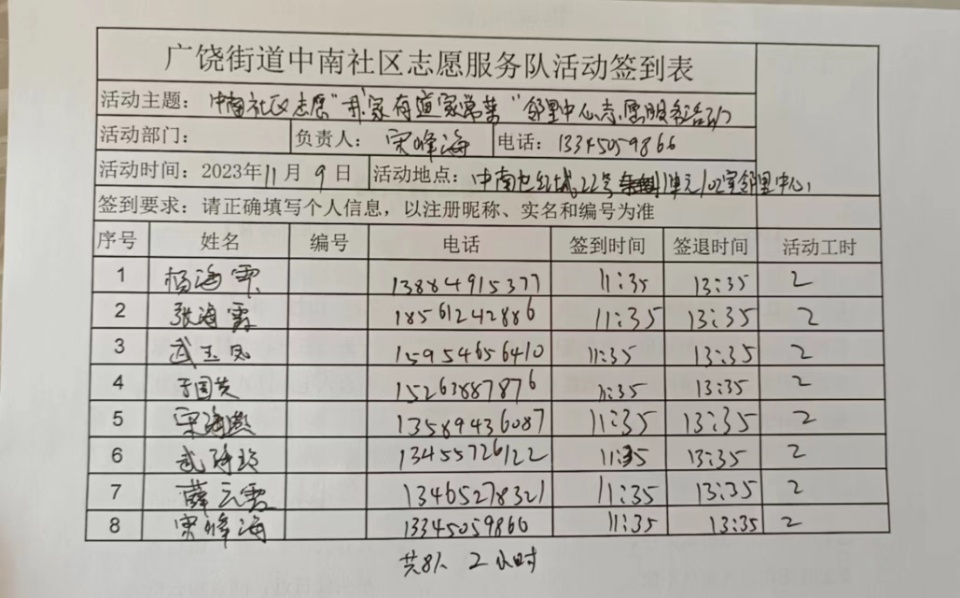 广饶街道中南社区志愿服务队活动签到表
活动主题：中南社区志愿"我家有道家常菜"邻里中心志愿服务活动
活动部门： 负责人：宋峰海 电话：13345059866
活动时间：2023年11月9日 活动地点：中南世纪城22号1单元102室邻里中心
签到要求：请正确填写个人信息，以注册昵称、实名和编号为准
序号 姓名 编号 电话 签到时间 签退时间 活动工时
1 杨海霞 13884915377 11:35 13:35 2
2 张海霞 18561242886 11:35 13:35 2
3 武玉凤 15954656410 11:35 13:35 2
4 于国英 15263887876 11:35 13:35 2
5 宋海燕 13589436087 11:35 13:35 2
6 武 13455726122 11:35 13:35 2
7 薛云霞 13465278321 11:35 13:35 2
8 宋峰海 13345059860 11:35 13:35 2
共8人 2小时